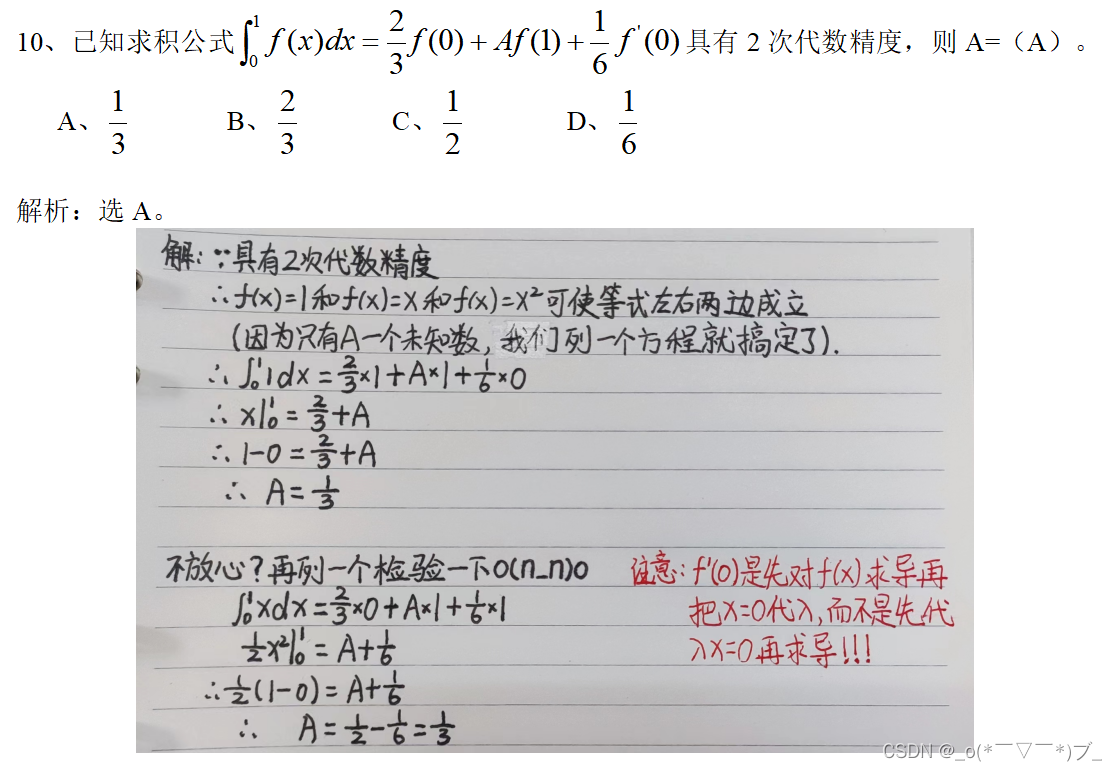 10、已知求积公式∫₀¹ f(x)dx = 2/3 f(0) + Af(1) + 1/6 f'(0) 具有 2 次代数精度，则 A=（A）。
A、1/3 B、2/3 C、1/2 D、1/6
解析：选 A。
解：∵具有2次代数精度
∴f(x)=1和f(x)=x和f(x)=x²可使等式左右两边成立
(因为只有A一个未知数，我们列一个方程就搞定了).
∴ ∫₀¹1dx = 2/3×1+A×1+1/6×0
∴ x|₀¹ = 2/3+A
∴ 1-0 = 2/3+A
∴ A = 1/3
不放心？再列一个检验一下O(n_n)O
∫₀¹xdx = 2/3×0+A×1+1/6×1
1/2x²|₀¹ = A+1/6
∴ 1/2(1-0) = A+1/6
∴ A = 1/2-1/6 = 1/3
注意：f'(0)是先对f(x)求导再
把x=0代入，而不是先代
入x=0再求导!!!
CSDN @_o(*￣▽￣*)ブ_